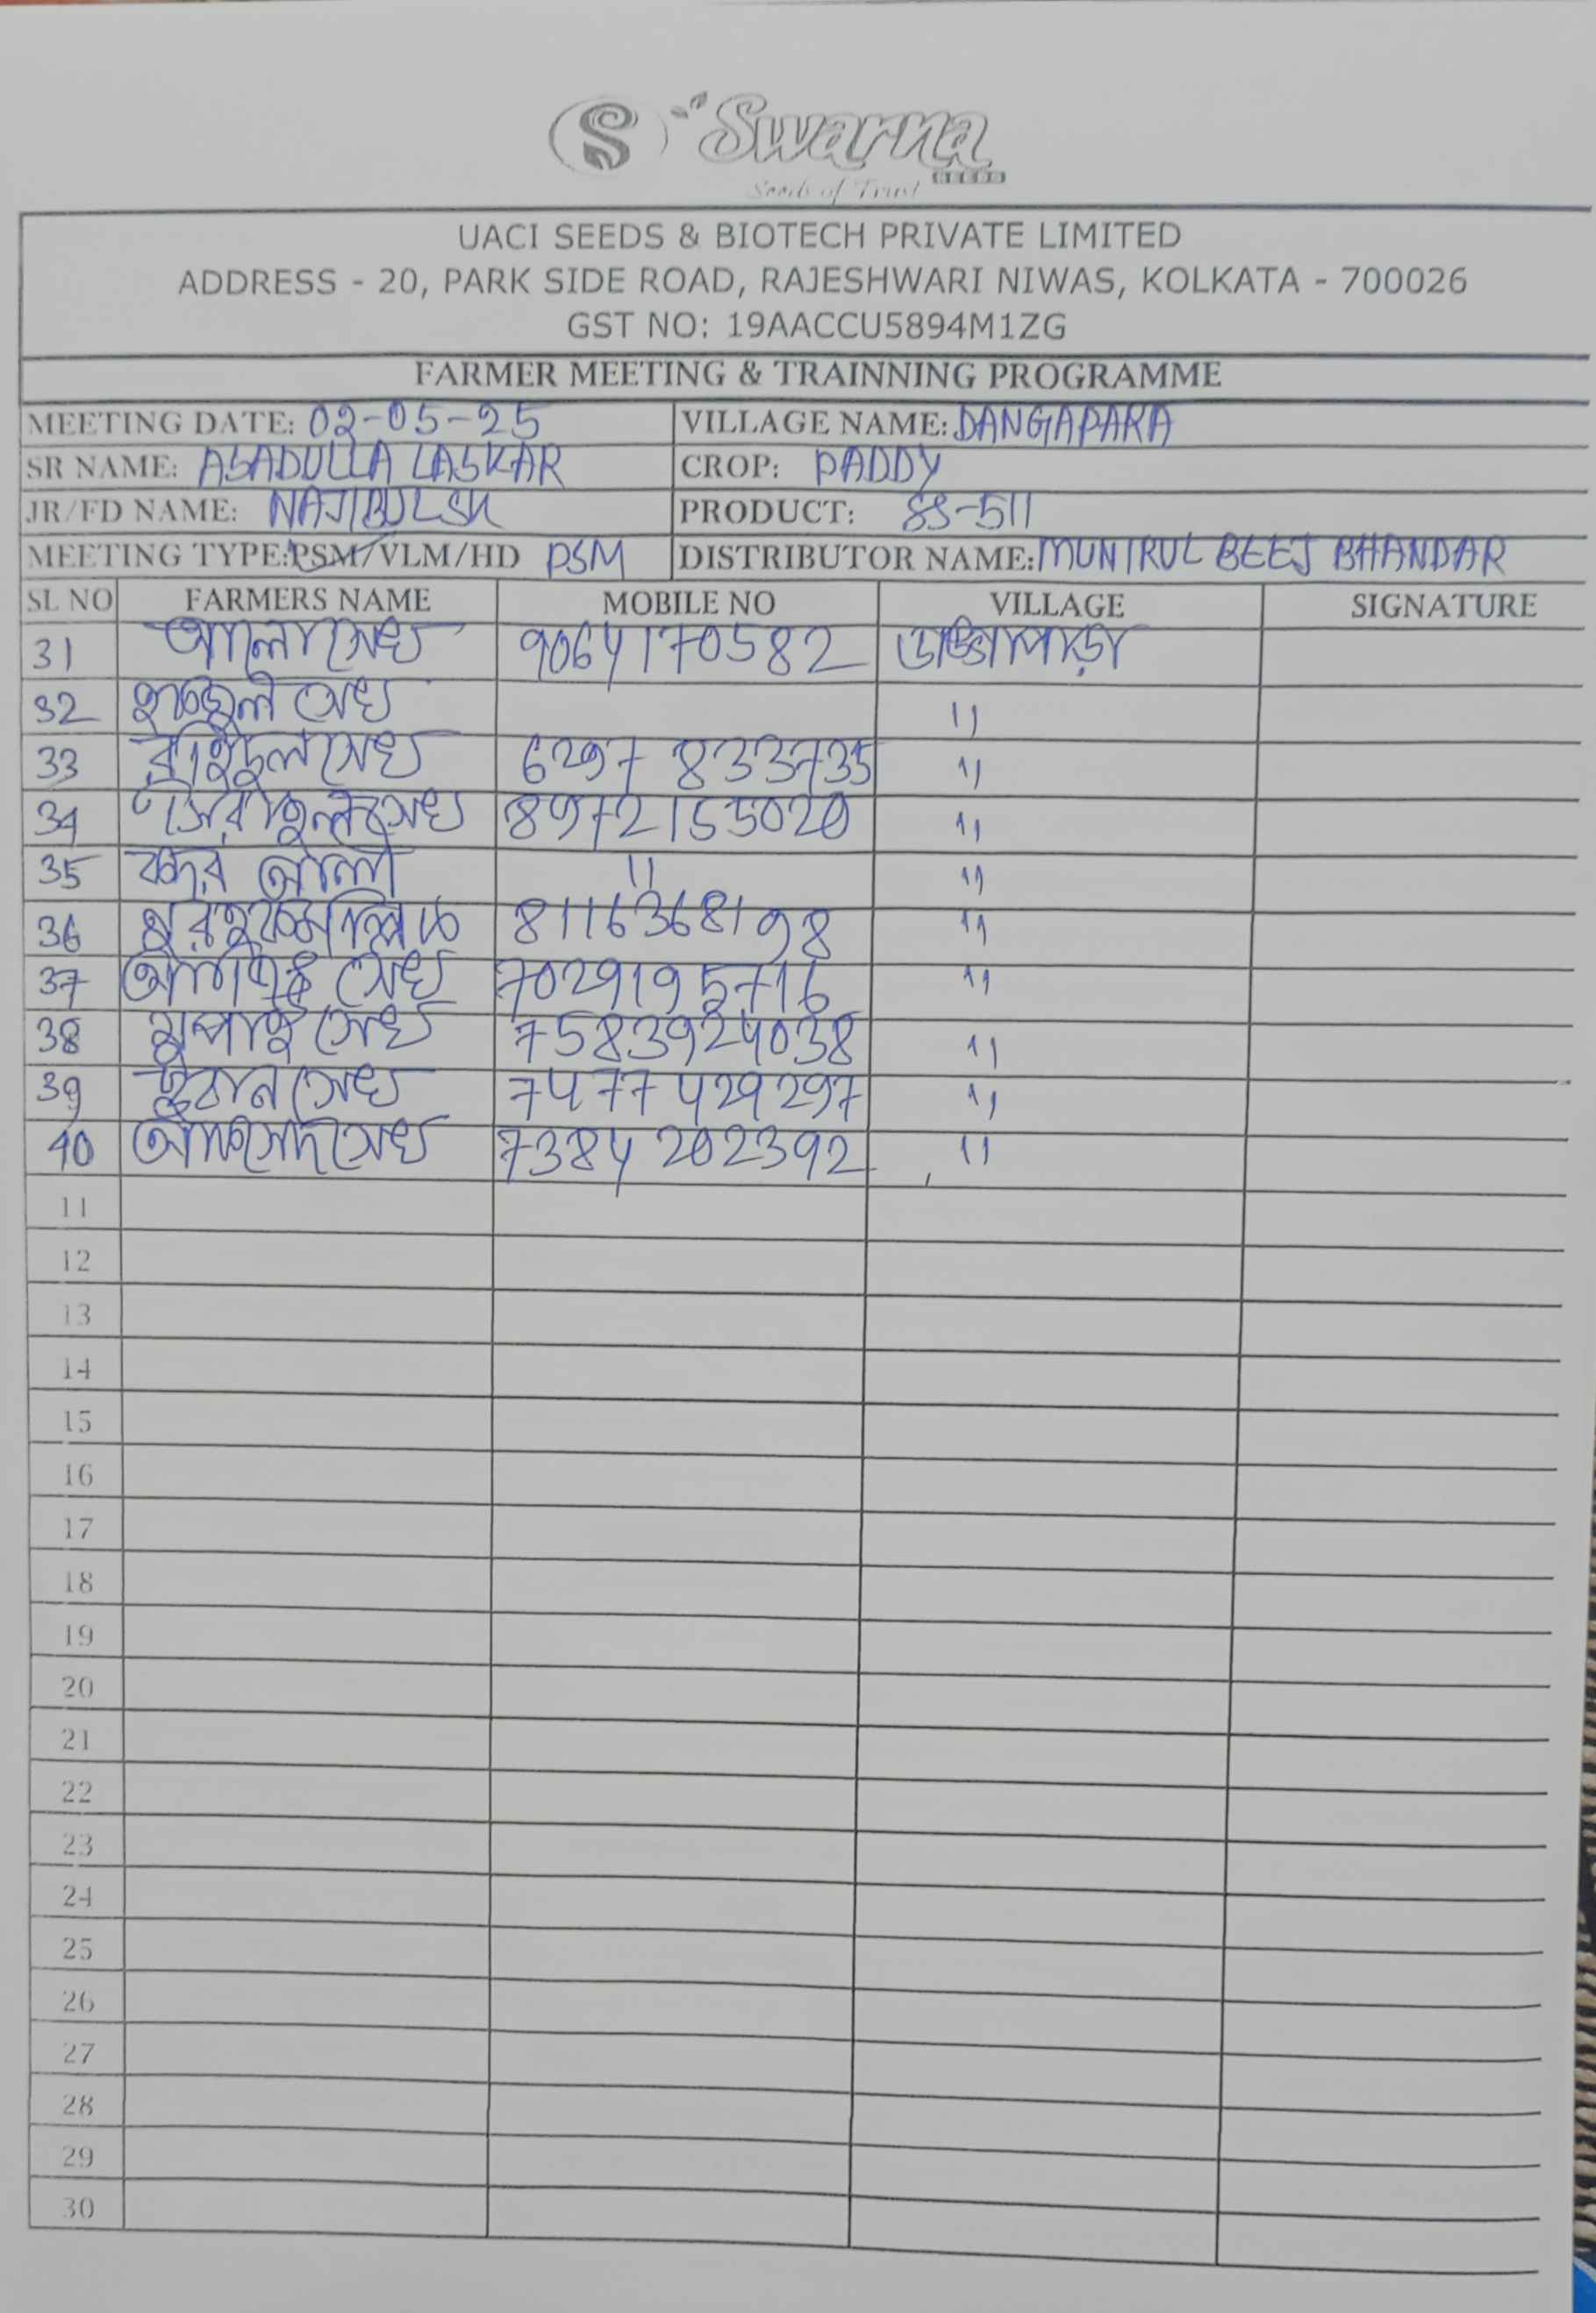 S Swarna
SEEDS
Seeds of Trust
UACI SEEDS & BIOTECH PRIVATE LIMITED
ADDRESS - 20, PARK SIDE ROAD, RAJESHWARI NIWAS, KOLKATA - 700026
GST NO: 19AACCU5894M1ZG
FARMER MEETING & TRAINNING PROGRAMME
MEETING DATE: 02-05-25 VILLAGE NAME: DANGAPARA
SR NAME: ASADULLA LASKAR CROP: PADDY
JR/FD NAME: NAJIBUL SK PRODUCT: SS-511
MEETING TYPE: PSM/VLM/HD PSM DISTRIBUTOR NAME: MUNIRUL BEEJ BHANDAR
SL NO FARMERS NAME MOBILE NO VILLAGE SIGNATURE
31 আলো সেখ 9064170582 ডাঙ্গাপাড়া
32 সেখ 11
33 সেখ 6297 833735 11
34 সেখ 8972155020 11
35 বদর আলী 11 11
36 মল্লিক 8116368198 11
37 সেখ 7029195716 11
38 সেখ 7583924038 11
39 সেখ 7477 429297 11
40 সেখ 7384 202392 11
11
12
13
14
15
16
17
18
19
20
21
22
23
24
25
26
27
28
29
30